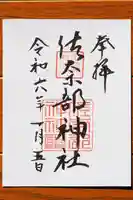 奉拝
佐奈部神社
令和六年一月五日